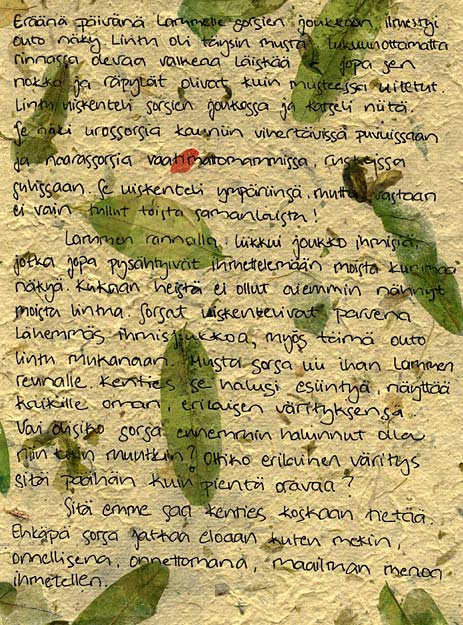 Eräänä päivänä lammelle sorsien joukkoon ilmestyi
outo näky. Lintu oli täysin musta lukuunottamatta
rinnassa olevaa valkeaa läiskää, jopa sen
nokka ja räpylät olivat kuin musteessa uitetut.
Lintu uiskenteli sorsien joukossa ja katseli niitä.
Se näki urossorsia kauniin vihertävissä puvuissaan
ja naarassorsia vaatimattomammissa, ruskeissa
sulissaan. Se uiskenteli ympäriinsä, mutta vastaan
ei vain tullut toista samanlaista!
Lammen rannalla liikkui joukko ihmisiä,
jotka jopa pysähtyivät ihmettelemään moista kummaa
näkyä. Kukaan heistä ei ollut aiemmin nähnyt
moista lintua. Sorsat uiskentelivat parvena
lähemmäs ihmisjoukkoa, myös tämä outo
lintu mukanaan. Musta sorsa ui ihan lammen
reunalle. Kenties se halusi esiintyä, näyttää
kaikille oman, erilaisen värityksensä.
Vai olisiko sorsa ennemmin halunnut olla
niin kuin muutkin? Oliko erilainen väritys
sitä päähän kuin pientä oravaa?
Sitä emme saa kenties koskaan tietää.
Ehkäpä sorsa jatkaa eloaan kuten mekin,
onnellisena, onnettomana, maailman menoa
ihmetellen.